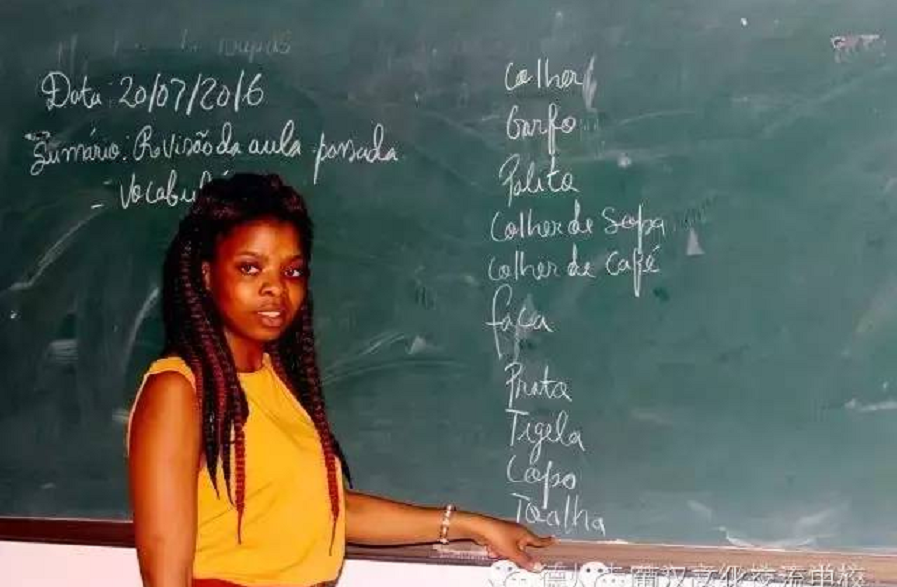 Data: 20/07/2016
Sumário: Revisão da aula passada
- Vocabulá
Colher
Garfo
Palito
Colher de Sopa
Colher de Café
faca
Prato
Tigela
Copo
Toalha